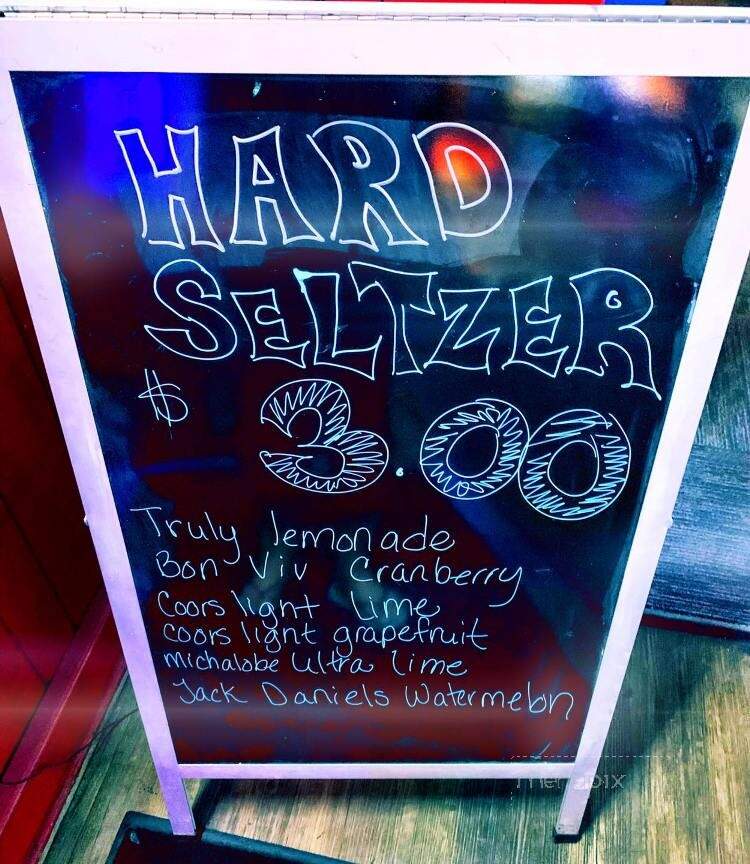 HARD
SELTZER
$ 3.00
Truly lemonade
Bon Viv Cranberry
Coors light Lime
coors light grapefruit
michalobe Ultra Lime
Jack Daniels Watermelon